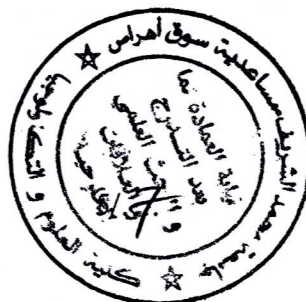 جامعة محمد الشريف مساعدية سوق أهراس
كلية العلوم و التكنولوجيا
نيابة العمادة لما
بعد التدرج
و البحث العلمي
و العلاقات
الخارجية